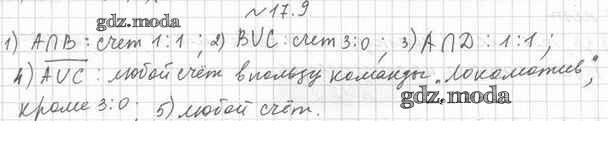 №17.9
gdz.moda
1) A∩B : счет 1:1 ; 2) B∪C : счет 3:0 ; 3) A∩D : 1:1 ;
4) A∪C : любой счёт в пользу команды „Локомотив",
кроме 3:0 ; 5) любой счёт.
gdz.moda